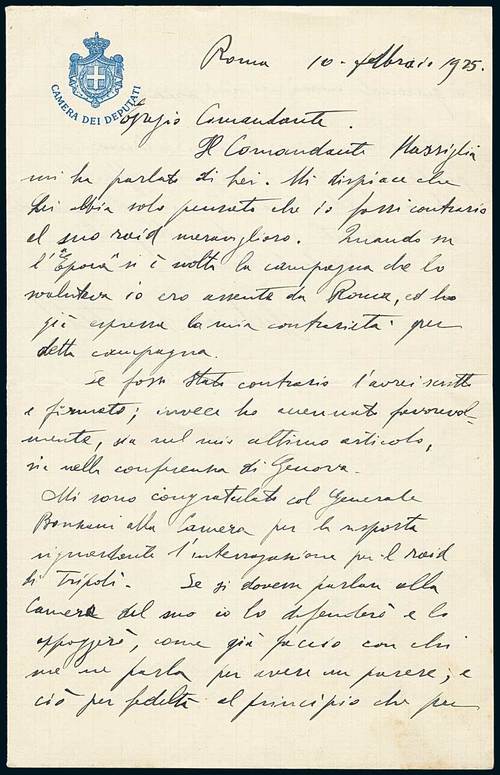 CAMERA DEI DEPUTATI
Roma 10 - febbraio 1925.
Egregio Comandante.
Il Comandante Marsiglia
mi ha parlato di Lei. Mi dispiace che
Lei abbia solo pensato che io fossi contrario
al suo raid meraviglioso. Quando su
l'"Epoca" si è svolta la campagna che lo
svalutava io ero assente da Roma, ed ho
già espressa la mia contrarietà per
detta campagna.
Se fossi stato contrario l'avrei scritto
e firmato; invece ho accennato favorevol-
mente, sia nel mio ultimo articolo,
sia nella conferenza di Genova.
Mi sono congratulato col Generale
Bonzani alla Camera per la risposta
riguardante l'interrogazione pel raid
di Tripoli. Se si dovesse parlare alla
Camera del suo io lo difenderò e lo
appoggerò, come già faccio con chi
me ne parla per avere un parere, e
ciò per fedeltà al principio che per